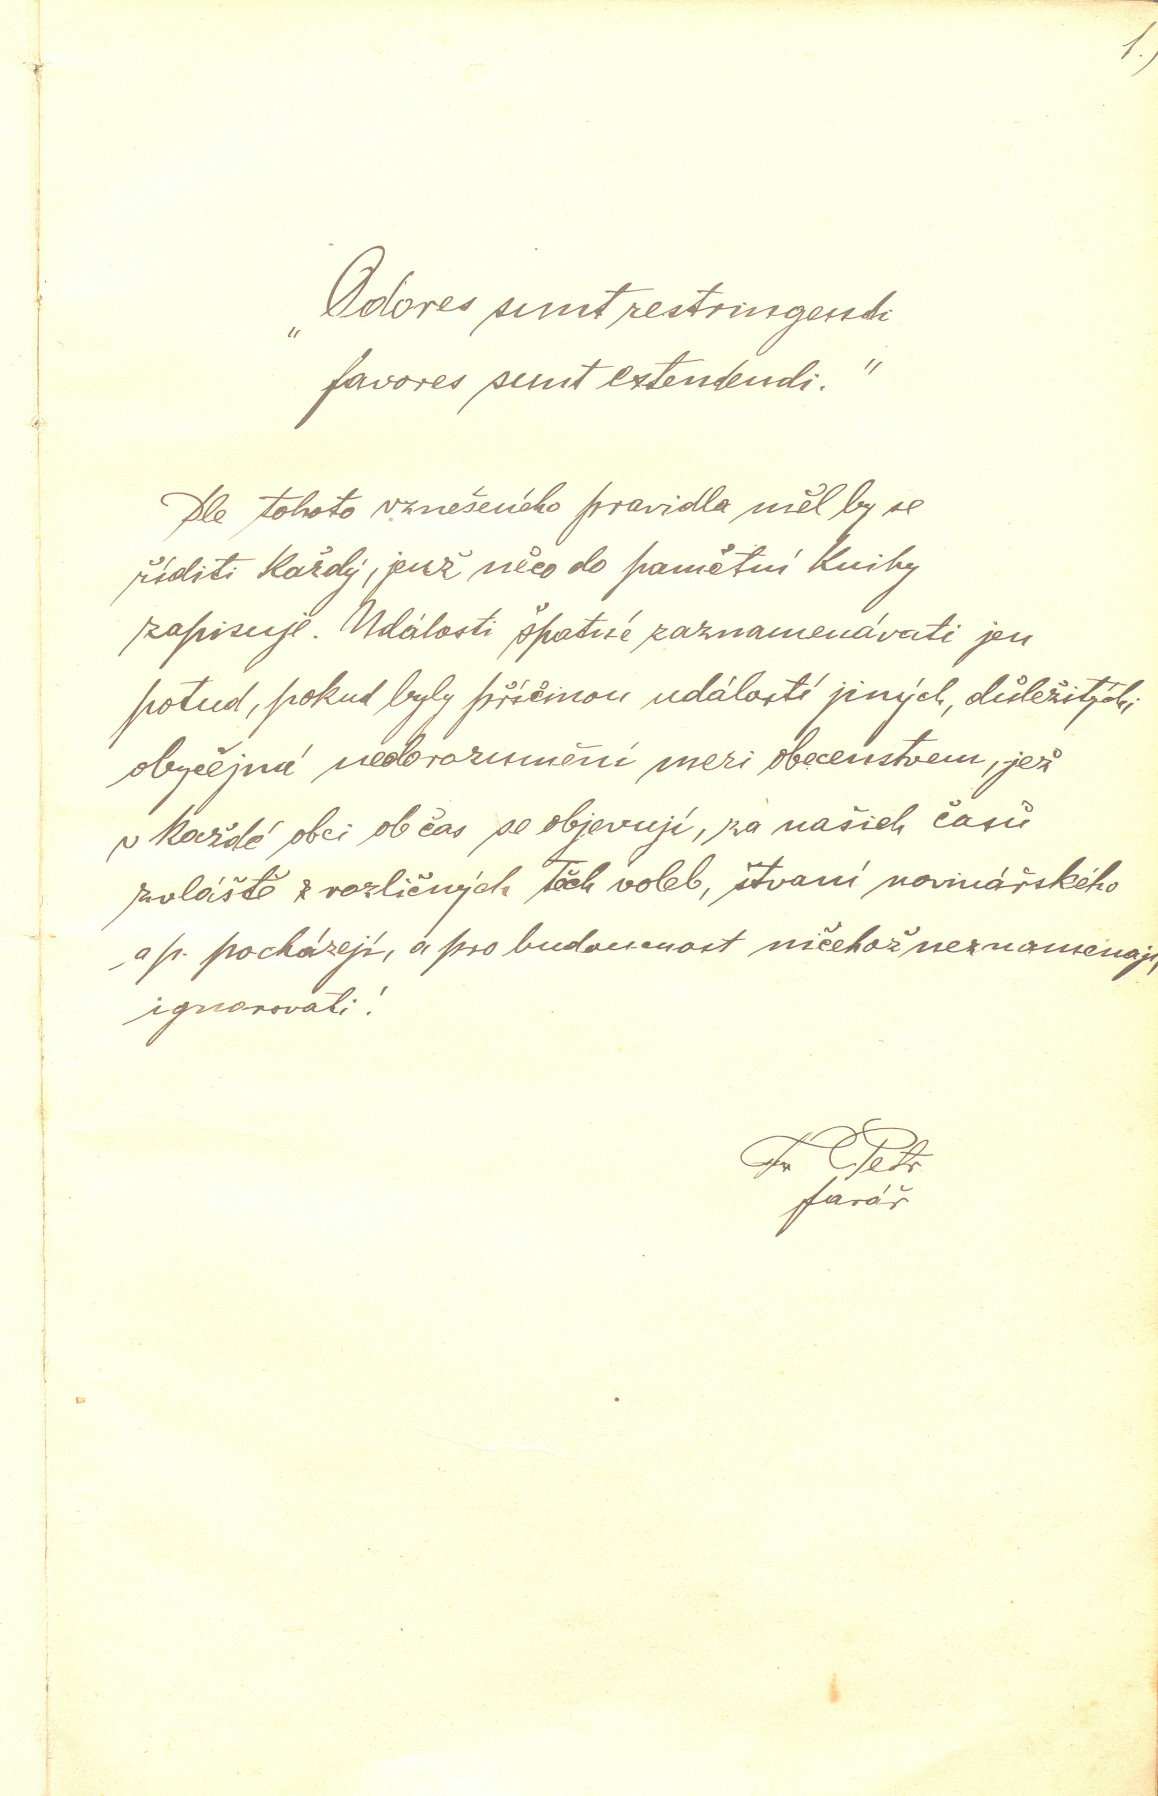 1.)
„Odores sunt restringendi
favores sunt extendendi."
Dle tohoto vznešeného pravidla měl by se
říditi každý, jenž něco do pamětní knihy
zapisuje. Události špatné zaznamenávati jen
potud, pokud byly příčinou událostí jiných, důležitých;
obyčejná nedorozumění mezi obecenstvem, jež
v každé obci občas se objevují, za našich časů
zvláště z rozličných těch voleb, štvaní novinářského
a p. pocházejí, a pro budoucnost ničehož neznamenají,
ignorovati!
Fr Petr
farář